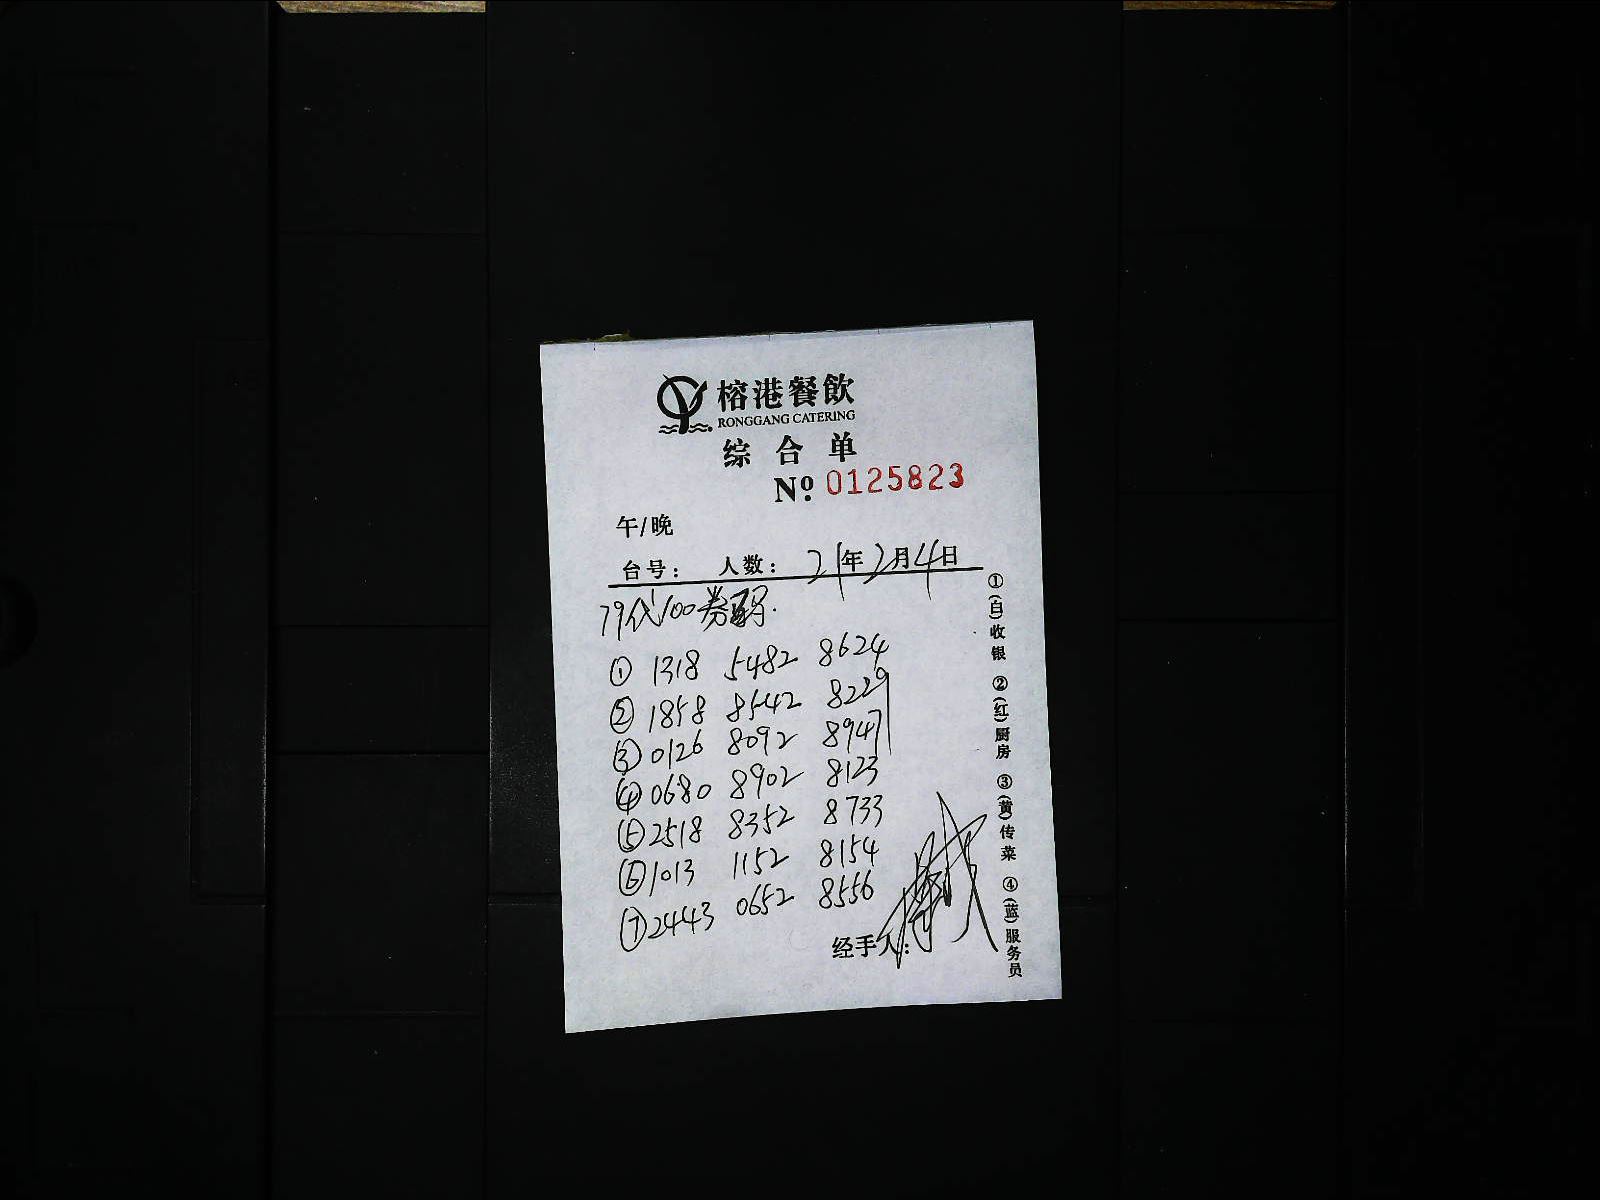 榕港餐飲
RONGGANG CATERING
综合单
Nº 0125823
午/晚
台号： 人数： 21年2月4日
79代100券
① 1318 5482 8624
② 1858 8542 8229
③ 0126 8092 8947
④ 0680 8902 8123
⑤ 2518 8352 8733
⑥ 1013 1152 8154
⑦ 2443 0652 8556
经手人：
①(白)收银 ②(红)厨房 ③(黄)传菜 ④(蓝)服务员